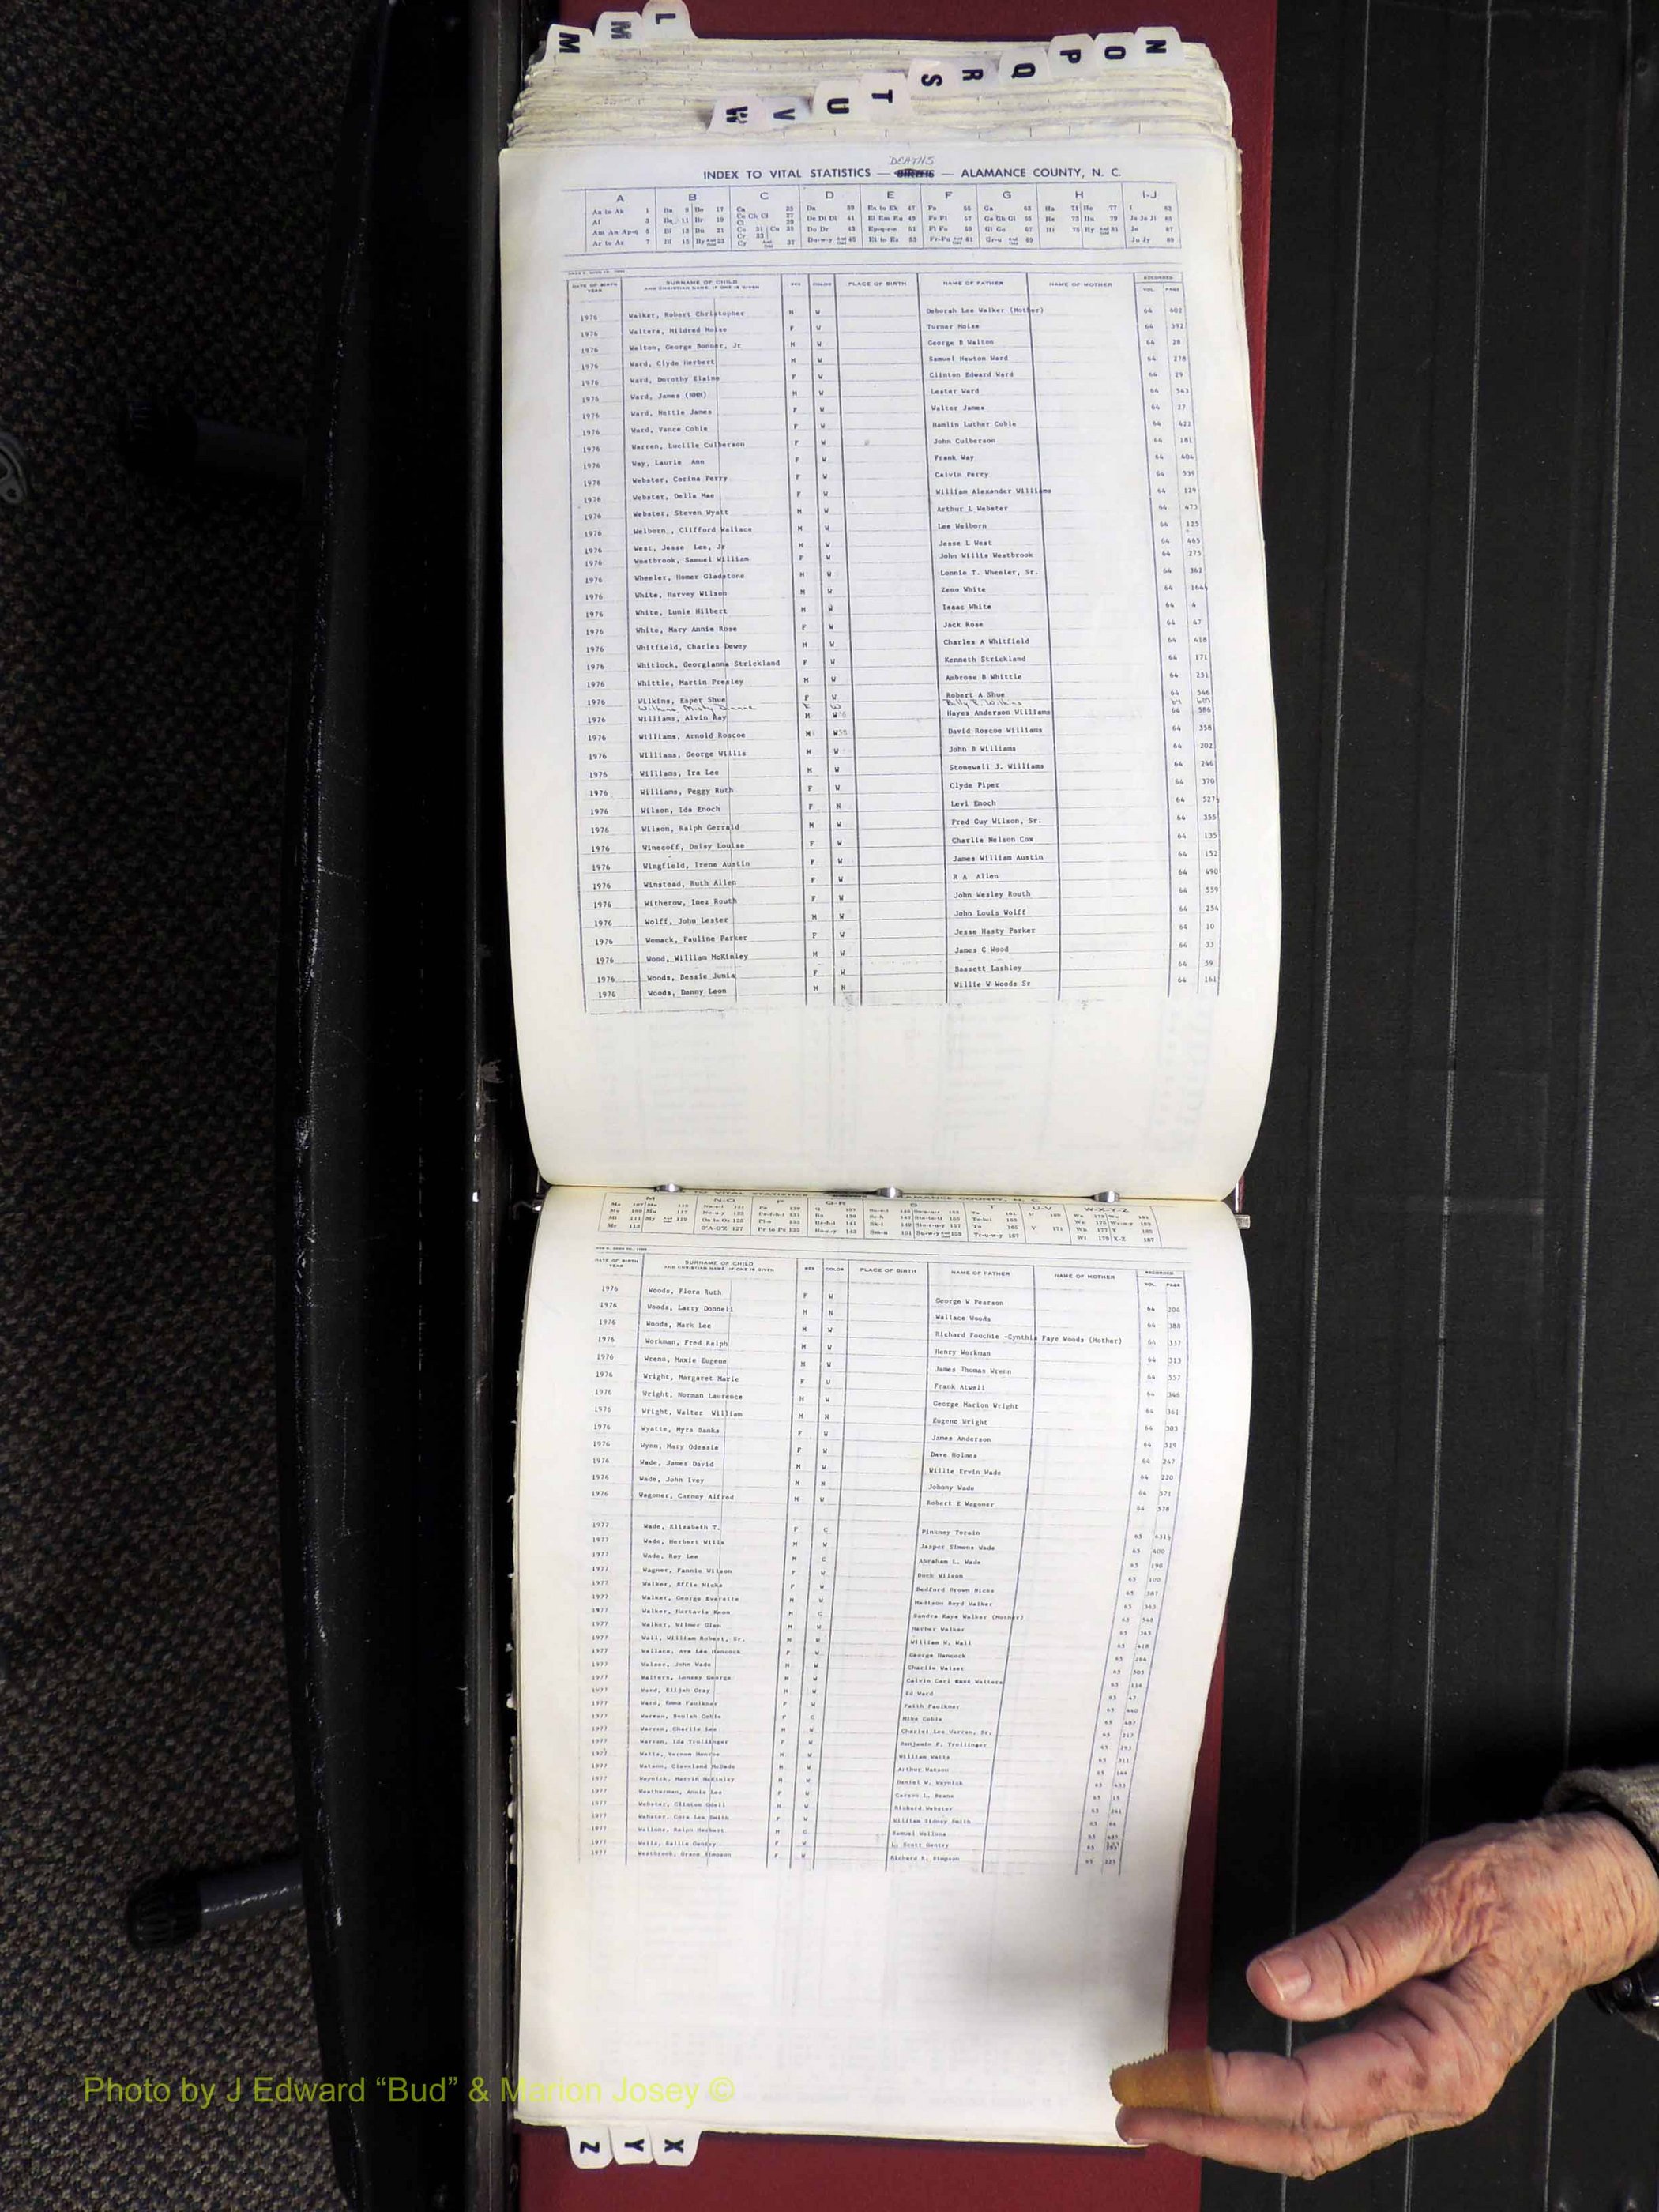 L
M
M
N
O
P
Q
R
S
T
U
V
W
DEATHS
INDEX TO VITAL STATISTICS — BIRTHS — ALAMANCE COUNTY, N. C.
A B C D E F G H I-J
DATE OF BIRTH YEAR SURNAME OF CHILD AND CHRISTIAN NAME, IF ONE IS GIVEN SEX COLOR PLACE OF BIRTH NAME OF FATHER NAME OF MOTHER RECORDED VOL. PAGE
1976 Walker, Robert Christopher M W Deborah Lee Walker (Mother) 64 602
1976 Walters, Mildred Moize F W Turner Moize 64 392
1976 Walton, George Bonner, Jr M W George B Walton 64 28
1976 Ward, Clyde Herbert M W Samuel Newton Ward 64 278
1976 Ward, Dorothy Elaine F W Clinton Edward Ward 64 29
1976 Ward, James (NMN) M W Lester Ward 64 543
1976 Ward, Nettie James F W Walter James 64 27
1976 Ward, Vance Coble F W Hamlin Luther Coble 64 422
1976 Warren, Lucille Culberson F W John Culberson 64 181
1976 Way, Laurie Ann F W Frank Way 64 404
1976 Webster, Corina Perry F W Calvin Perry 64 539
1976 Webster, Della Mae F W William Alexander Williams 64 129
1976 Webster, Steven Wyatt M W Arthur L Webster 64 473
1976 Welborn, Clifford Wallace M W Lee Welborn 64 125
1976 West, Jesse Lee, Jr M W Jesse L West 64 465
1976 Westbrook, Samuel William F W John Willis Westbrook 64 275
1976 Wheeler, Homer Gladstone M W Lonnie T. Wheeler, Sr. 64 362
1976 White, Harvey Wilson M W Zeno White 64
1976 White, Lunie Hilbert M W Isaac White 64 4
1976 White, Mary Annie Rose F W Jack Rose 64 47
1976 Whitfield, Charles Dewey M W Charles A Whitfield 64 418
1976 Whitlock, Georgianna Strickland F W Kenneth Strickland 64 171
1976 Whittle, Martin Presley M W Ambrose B Whittle 64 251
1976 Wilkins, Esper Shue F W Robert A Shue 64 546
Wilkins, Misty Dianne F W Billy R. Wilkins 64
1976 Williams, Alvin Ray M W Hayes Anderson Williams 64 586
1976 Williams, Arnold Roscoe M W David Roscoe Williams 64 358
1976 Williams, George Willis M W John D Williams 64 202
1976 Williams, Ira Lee M W Stonewall J. Williams 64 246
1976 Williams, Peggy Ruth F W Clyde Piper 64 370
1976 Wilson, Ida Enoch F N Levi Enoch 64 527
1976 Wilson, Ralph Gerrald M W Fred Guy Wilson, Sr. 64 355
1976 Winecoff, Daisy Louise F W Charlie Nelson Cox 64 135
1976 Wingfield, Irene Austin F W James William Austin 64 152
1976 Winstead, Ruth Allen F W R A Allen 64 490
1976 Witherow, Inez Routh F W John Wesley Routh 64 559
1976 Wolff, John Lester M W John Louis Wolff 64 254
1976 Womack, Pauline Parker F W Jesse Hasty Parker 64 10
1976 Wood, William McKinley M W James C Wood 64 33
1976 Woods, Bessie Junia F W Bassett Lashley 64 59
1976 Woods, Danny Leon M N Willie W Woods Sr 64 161
M N-O P Q-R S T U-V W-X-Y-Z
DATE OF BIRTH YEAR SURNAME OF CHILD AND CHRISTIAN NAME, IF ONE IS GIVEN SEX COLOR PLACE OF BIRTH NAME OF FATHER NAME OF MOTHER RECORDED VOL. PAGE
1976 Woods, Flora Ruth F W George W Pearson 64 204
1976 Woods, Larry Donnell M N Wallace Woods 64 388
1976 Woods, Mark Lee M W Richard Fouchie -Cynthia Faye Woods (Mother) 64 337
1976 Workman, Fred Ralph M W Henry Workman 64 313
1976 Wrenn, Maxie Eugene M W James Thomas Wrenn 64 357
1976 Wright, Margaret Marie F W Frank Atwell 64 346
1976 Wright, Norman Laurence M W George Marion Wright 64 361
1976 Wright, Walter William M N Eugene Wright 64 303
1976 Wyatte, Myra Banks F W James Anderson 64 319
1976 Wynn, Mary Odessie F W Dave Holmes 64 247
1976 Wade, James David M W Willie Ervin Wade 64 220
1976 Wade, John Ivey M N Johnny Wade 64 571
1976 Wagoner, Carney Alfred M W Robert E Wagoner 64 578
1977 Wade, Elizabeth T. F C Pinkney Torain 65
1977 Wade, Herbert Wills M W Jasper Simens Wade 65 400
1977 Wade, Roy Lee M C Abraham L. Wade 65 190
1977 Wagner, Fannie Wilson F W Buck Wilson 65 100
1977 Walker, Effie Nicks F W Bedford Brown Nicks 65 587
1977 Walker, George Everette M W Madison Boyd Walker 65 363
1977 Walker, Hortavis Keon M C Sandra Kaye Walker (Mother) 65 548
1977 Walker, Wilmer Glen M W Herber Walker 65 345
1977 Wall, William Robert, Sr. M W William W. Wall 65 418
1977 Wallace, Ava Lee Hancock F W George Hancock 65 264
1977 Walser, John Wade M W Charlie Walser 65 505
1977 Walters, Lonsey George M W Calvin Carl Walters 65 116
1977 Ward, Elijah Gray M W Ed Ward 65 47
1977 Ward, Emma Faulkner F W Faith Faulkner 65 440
1977 Warren, Beulah Coble F C Mike Coble 65 487
1977 Warren, Charlie Lee M W Charlei Lee Warren, Sr. 65 217
1977 Warren, Ida Trollinger F W Benjamin F. Trollinger 65 293
1977 Watts, Vernon Monroe M W William Watts 65 311
1977 Watson, Cleveland McDade M W Arthur Watson 65 164
1977 Waynick, Marvin McKinley M W Daniel W. Waynick 65 433
1977 Weatherman, Annie Lee F W Carson L. Deane 65 15
1977 Webster, Clinton Odell M W Richard Webster 65 241
1977 Webster, Cora Lee Smith F W William Sidney Smith 65 66
1977 Wellons, Ralph Herbert M C Samuel Wellons 65
1977 Wells, Sallie Gentry F W L. Scott Gentry 65
1977 Westbrook, Grace Simpson F W Richard R. Simpson 65 225
Photo by J Edward “Bud” & Marion Josey ©
Z
Y
X